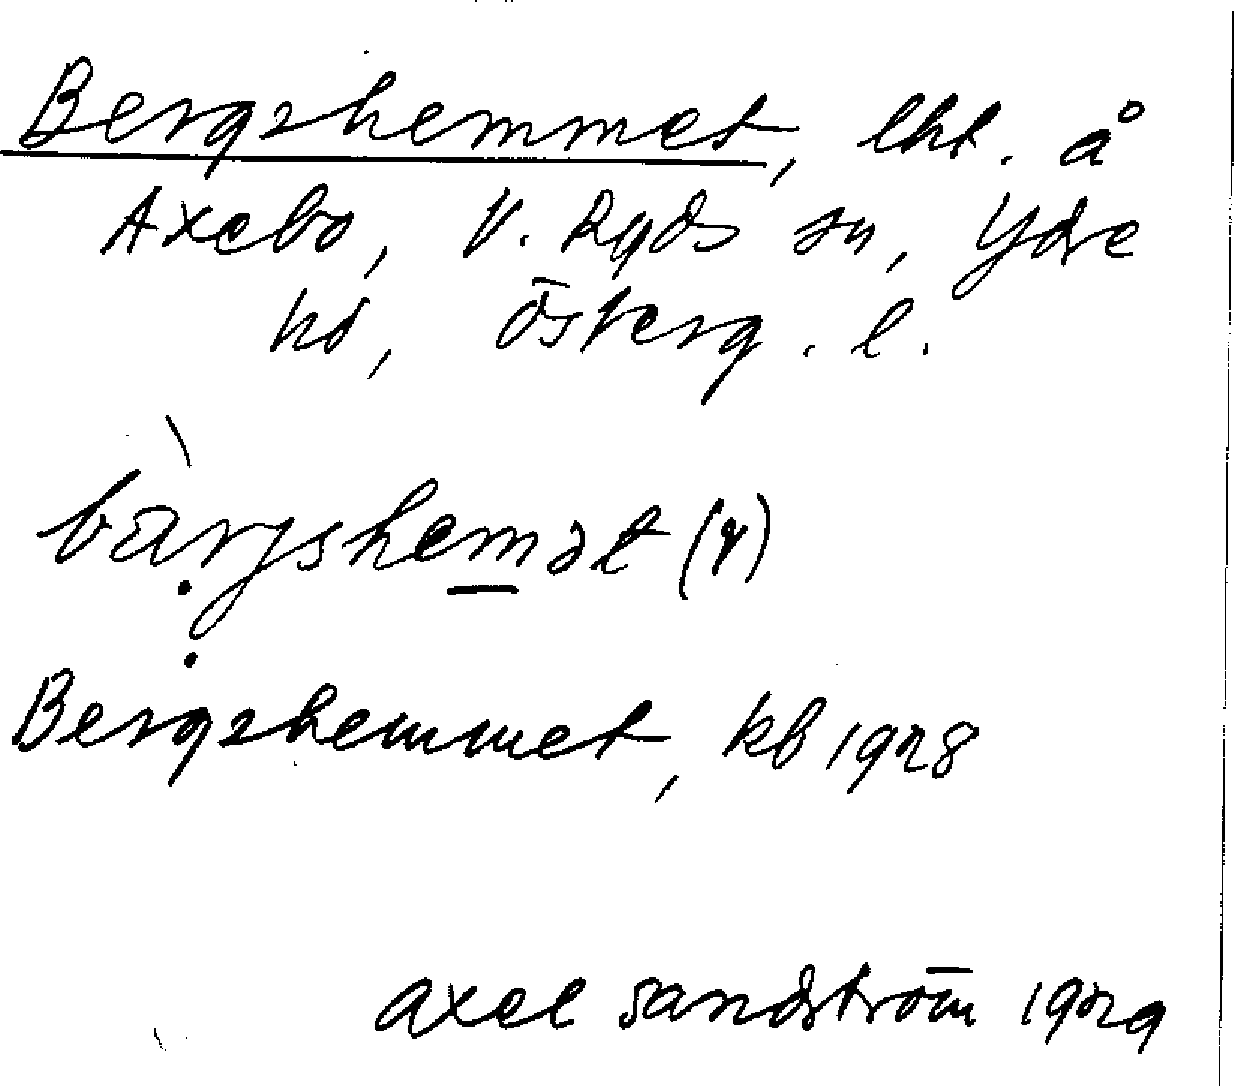 Bergshemmet, lht. å
Axebo, V. Ryds sn, Ydre
hd, Österg. l.
bàrjshemət (γ)
Bergshemmet, kb 1928
Axel Sandström 1929